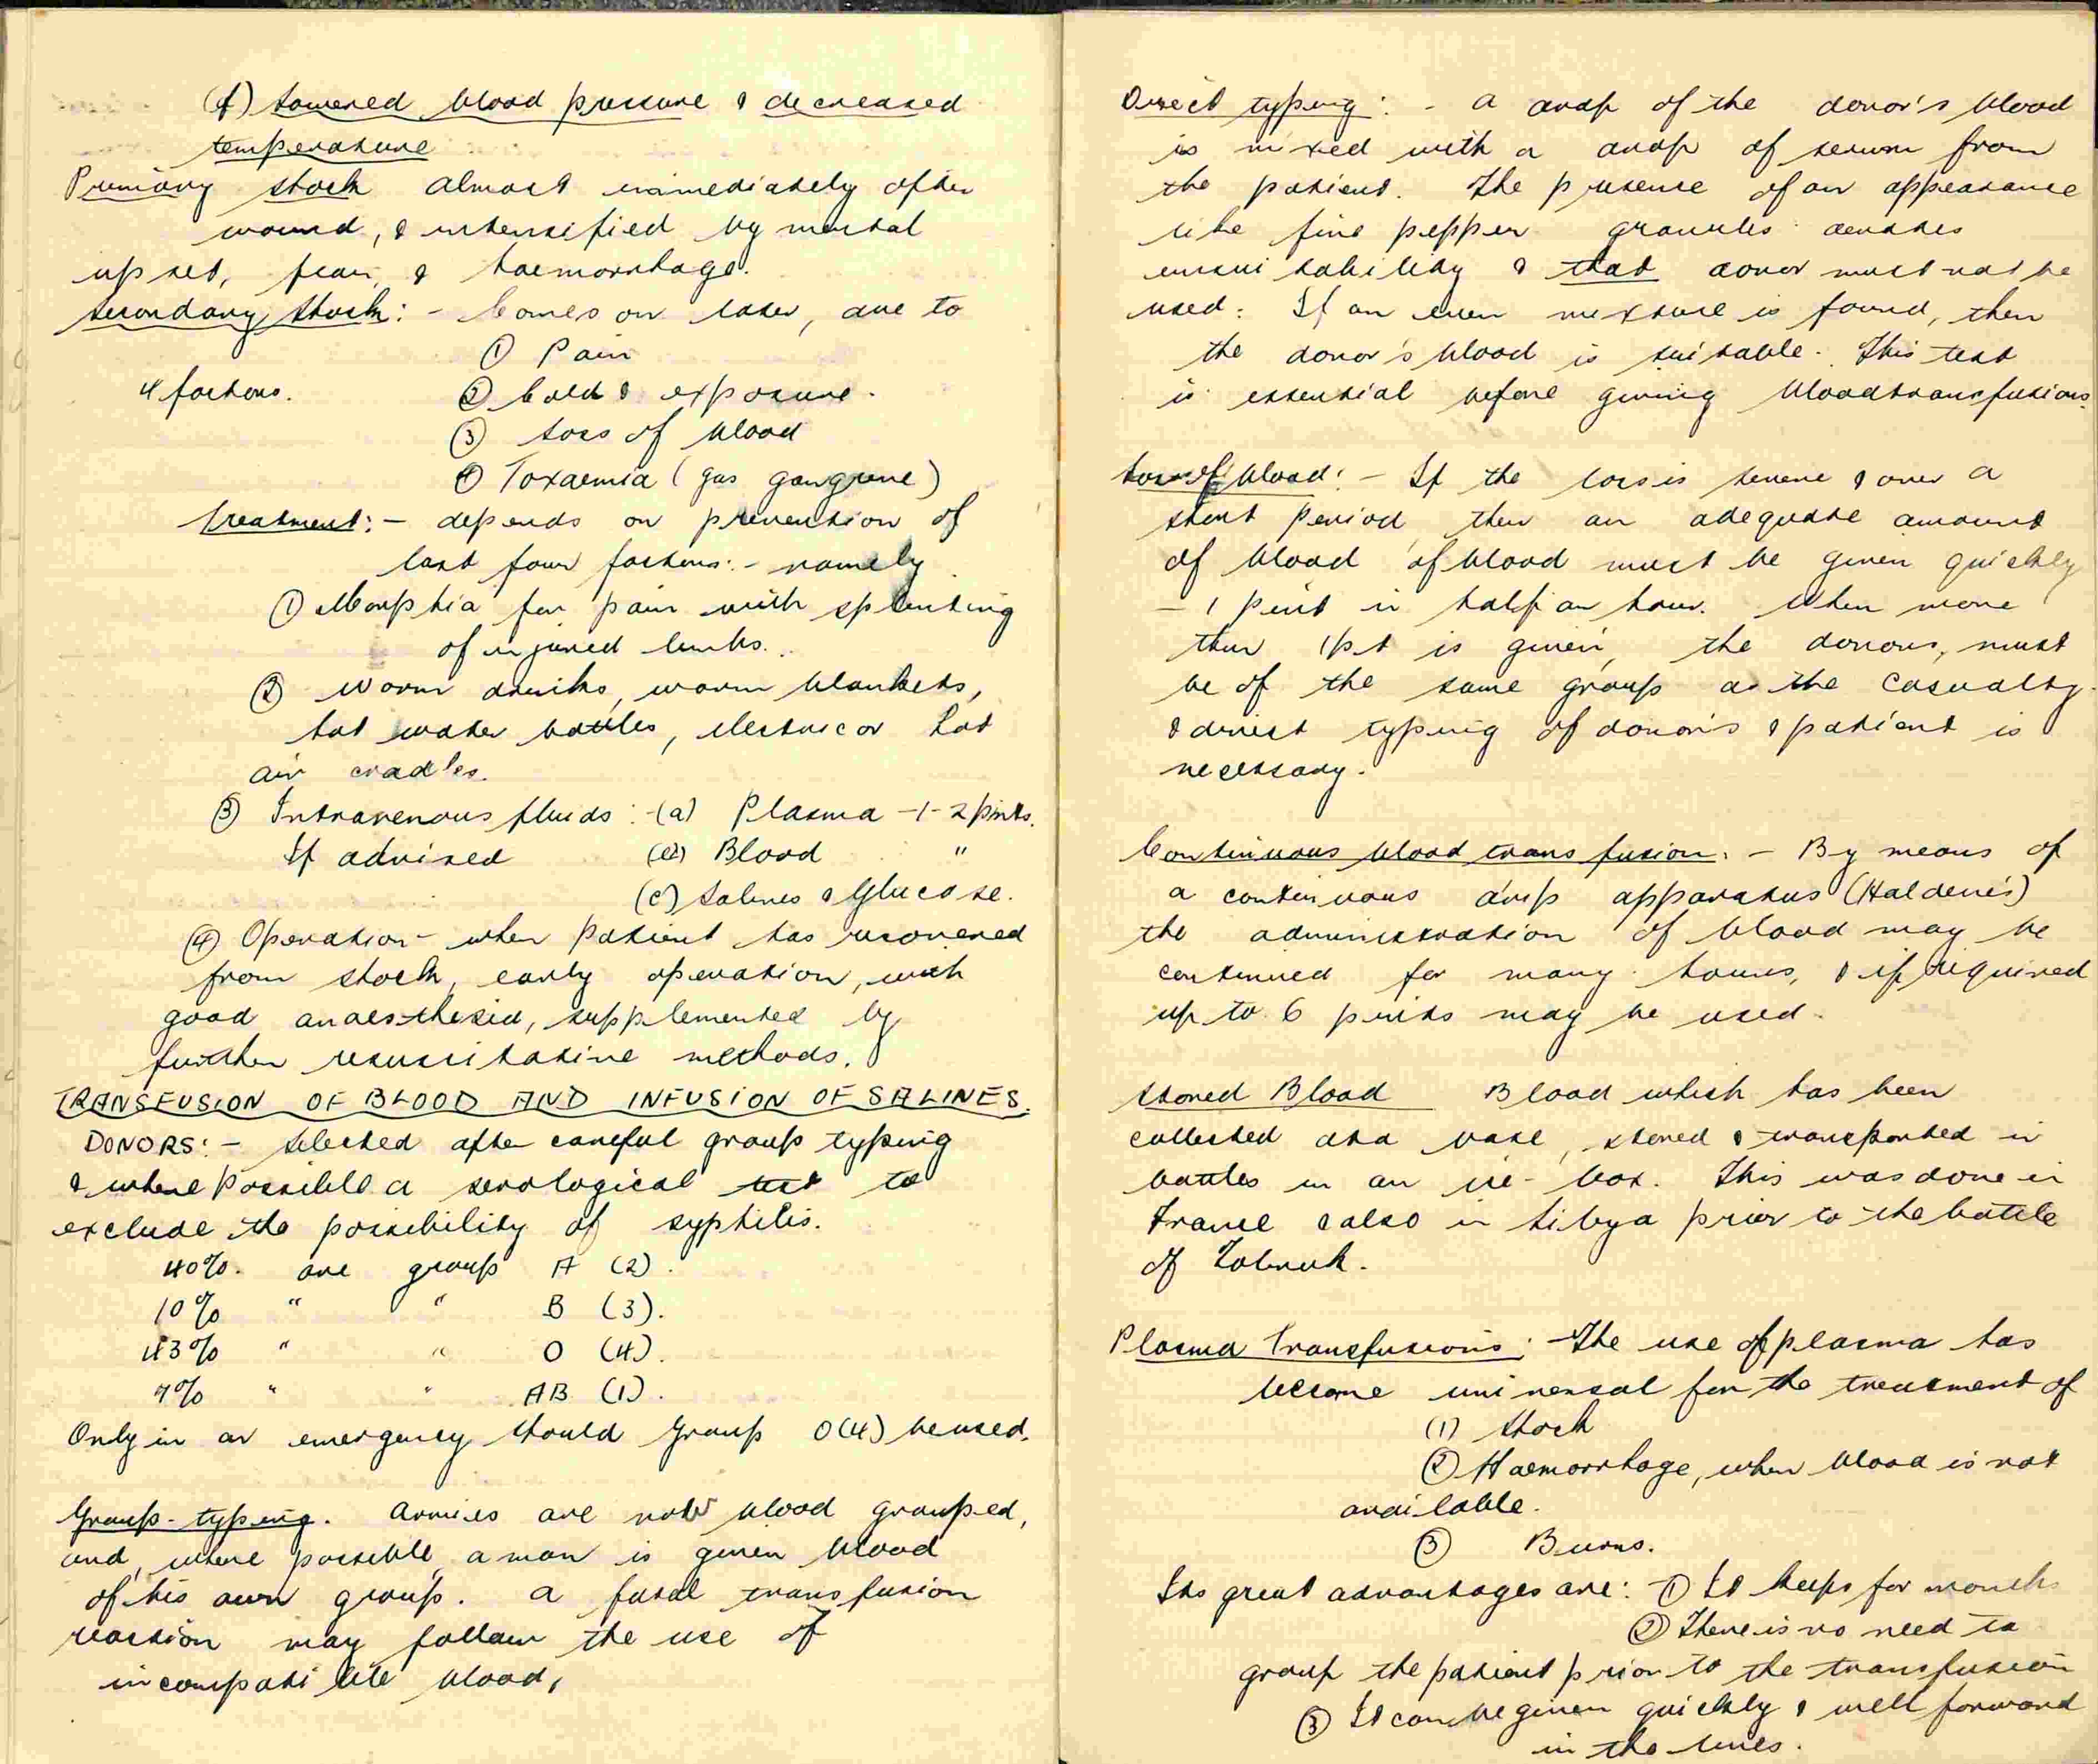 (f) Lowered blood pressure & decreased
temperature
Primary shock almost immediately after
wound, & intensified by mental
upset, fear, & haemorrhage.
Secondary Shock: - Comes on later, due to
① Pain
4 factors. ② Cold & exposure.
③ Loss of blood
④ Toxaemia (gas gangrene)
Treatment: - depends on prevention of
last four factors: - namely
① Morphia for pain with splinting
of injured limbs.
② Warm drinks, warm blankets,
hot water bottles, electric or hot
air cradles.
③ Intravenous fluids: -(a) Plasma -1-2 pints.
If advised (b) Blood "
(c) Salines & Glucose.
④ Operation - when patient has recovered
from shock, early operation, with
good anaesthesia, supplemented by
further resuscitative methods.
TRANSFUSION OF BLOOD AND INFUSION OF SALINES.
DONORS: - selected after careful group typing
& where possible a serological test to
exclude the possibility of syphilis.
40%. are group A (2).
10% " " B (3).
43% " " O (4).
7% " " AB (1).
Only in an emergency should Group O(4) be used.
Group-typing. Armies are now blood grouped,
and, where possible, a man is given blood
of his own group. A fatal transfusion
reaction may follow the use of
incompatible blood,
Direct typing: - A drop of the donor's blood
is mixed with a drop of serum from
the patient. The presence of an appearance
like fine pepper granules denotes
unsuitability & that donor must not be
used: If an even mixture is found, then
the donor's blood is suitable. This test
is essential before giving blood transfusions.
Loss of blood: - If the loss is severe & over a
short period, then an adequate amount
of blood of blood must be given quickly
- 1 pint in half an hour. When more
than 1pt is given, the donors, must
be of the same group as the casualty.
& direct typing of donors & patient is
necessary.
Continuous blood transfusion: - By means of
a continuous drip apparatus (Haldene's)
the administration of blood may be
continued for many hours, & if required
up to 6 pints may be used.
Stored Blood Blood which has been
collected at a base, stored & transported in
bottles in an ice-box. This was done in
France & also in Libya prior to the battle
of Tobruk.
Plasma Transfusions: -The use of plasma has
become universal for the treatment of
(1) Shock
② Haemorrhage, when blood is not
available.
③ Burns.
Its great advantages are: - ① It keeps for months
② There is no need to
group the patient prior to the transfusion
③ It can be given quickly & well forward
in the lines.